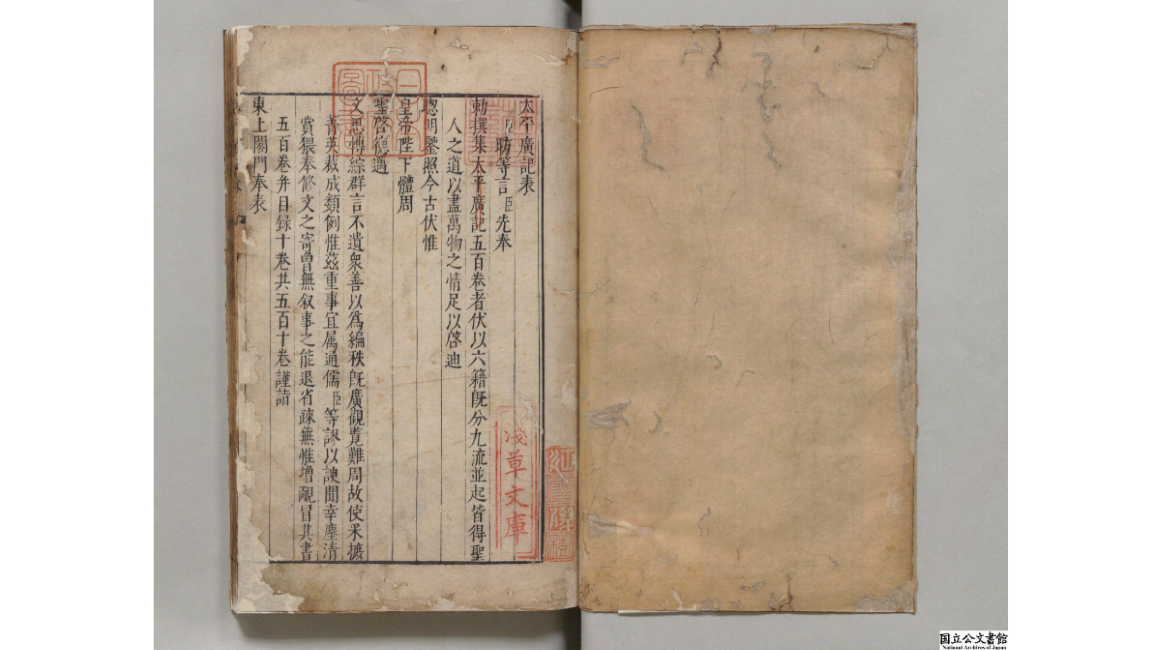 太平廣記表
臣昉等言臣先奉
勅撰集太平廣記五百卷者伏以六籍旣分九流並起皆得聖
人之道以盡萬物之情足以啓迪
聰明鑒照今古伏惟
皇帝陛下體周
聖啓德邁
文思博綜群言不遺衆善以爲編秩旣廣觀覽難周故使采摭
菁英裁成類例惟茲重事宜属通儒臣等謬以諛聞幸塵清
賞猥奉修文之寄曾無叙事之能退省疎蕪惟增靦冒其書
五百卷并目録十卷共五百十卷謹詣
東上閤門奉表
淺草文庫
日本政府圖書
国立公文書館
National Archives of Japan